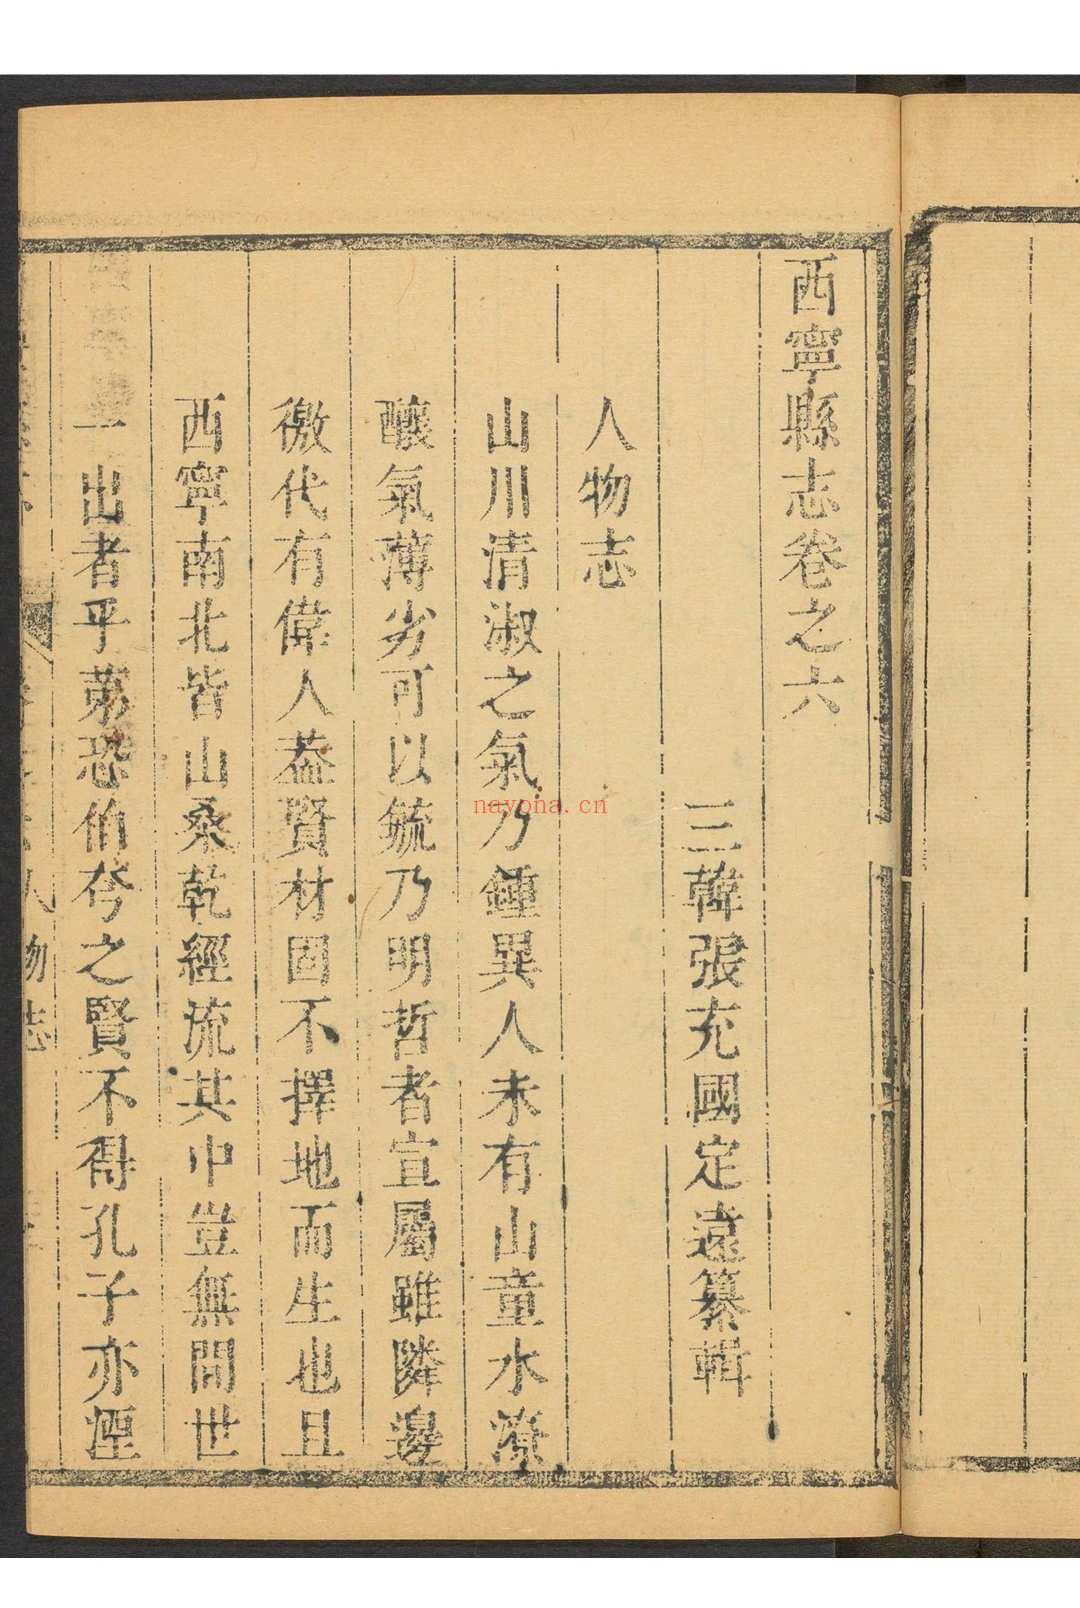 西寧縣志卷之六
三韓張充國定遠纂輯
人物志
山川清淑之氣乃鍾異人未有山童水濁
釀氣薄劣可以毓乃明哲者宣屬雖隣邊
徼代有偉人葢賢材固不擇地而生也且
西寧南北皆山桑乾經流其中豈無間世
一出者乎苐恐伯夸之賢不得孔子亦湮
人物志
nayona.cn